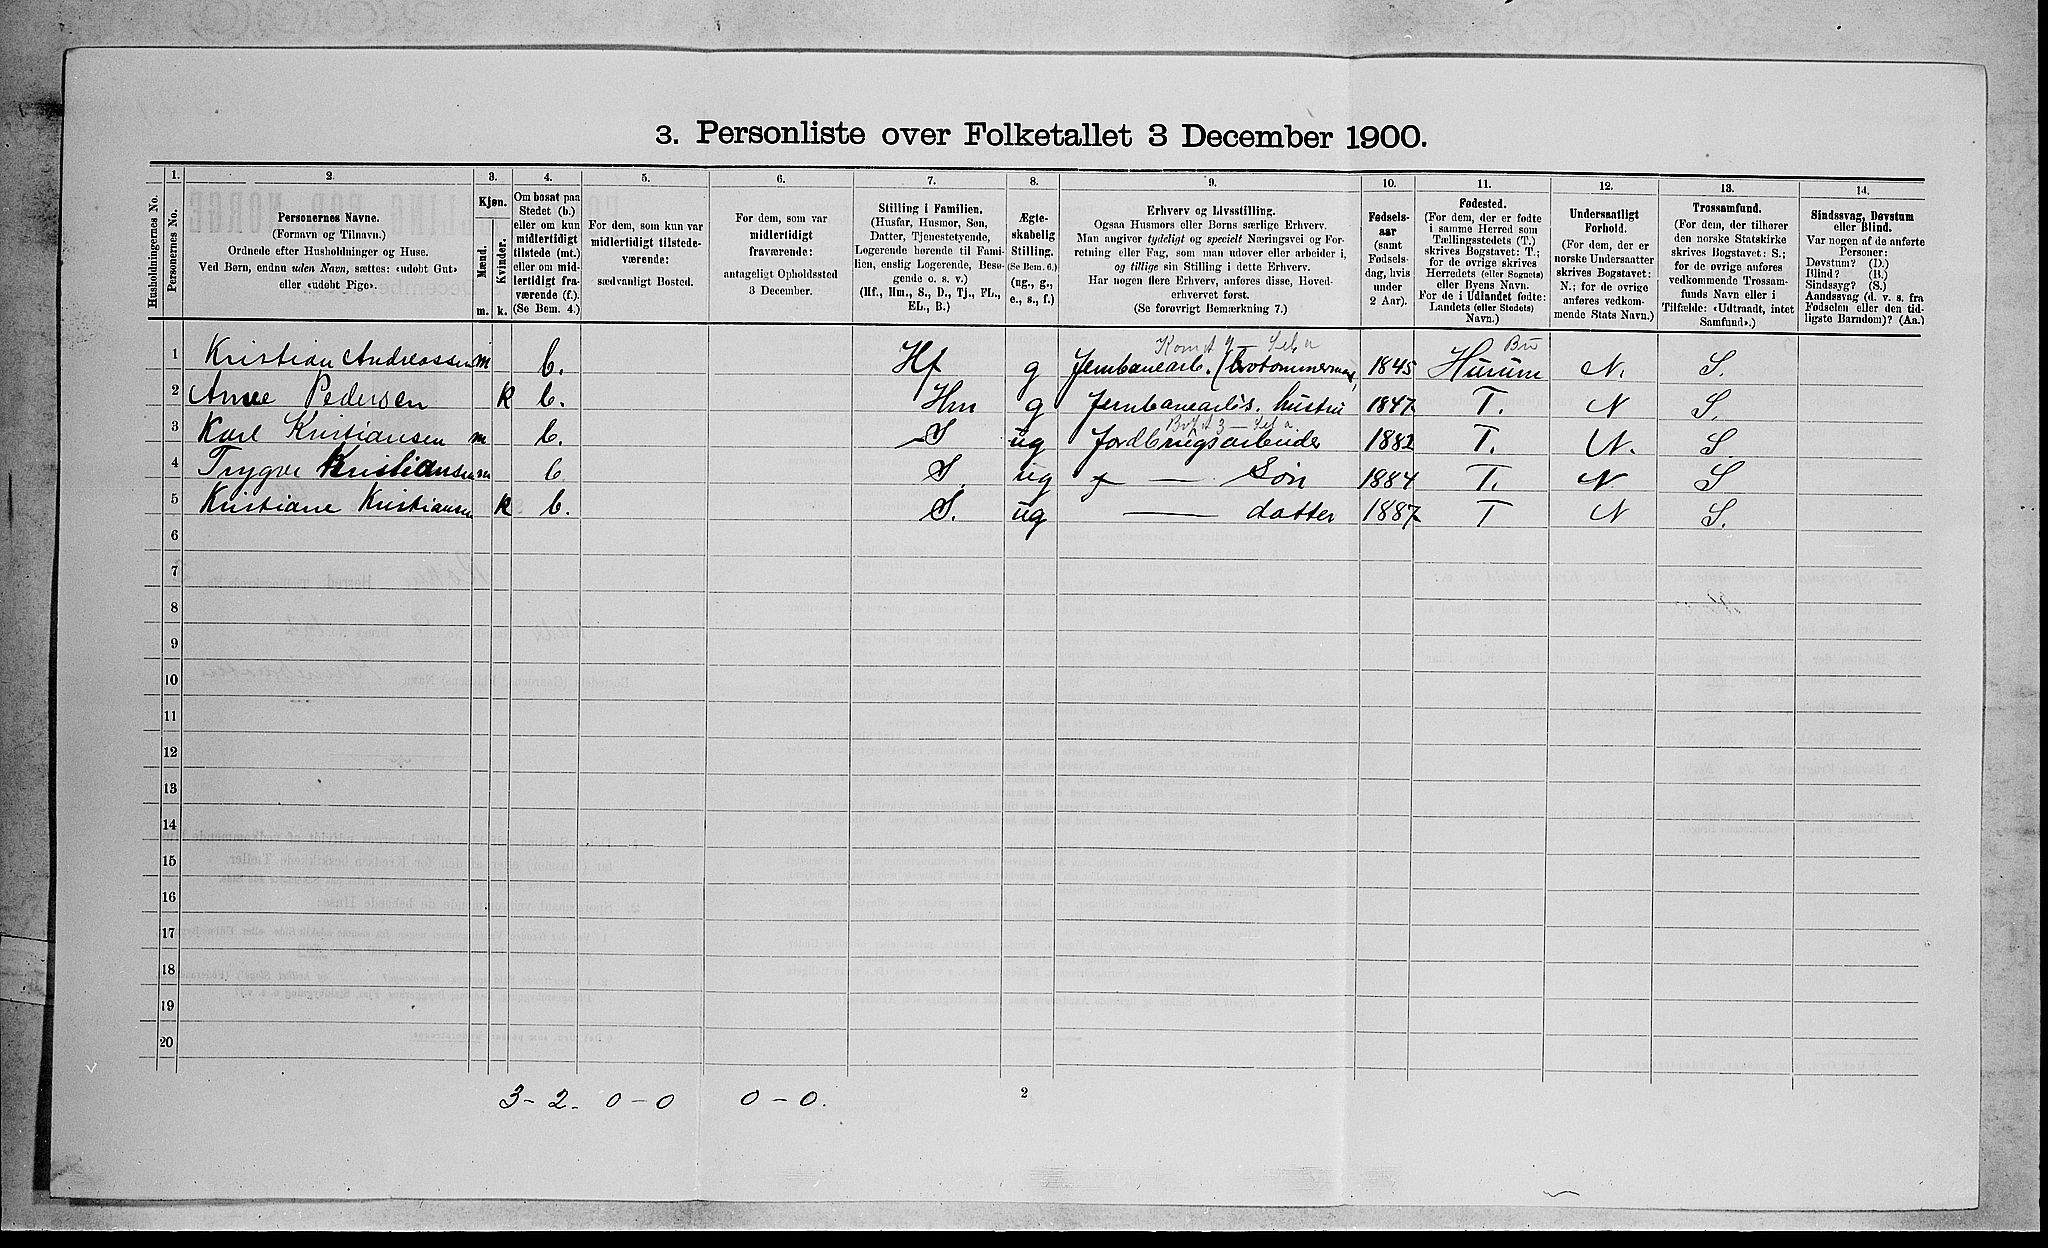 3. Personliste over Folketallet 3 December 1900.
1. 2. 3. 4. 5. 6. 7. 8. 9. 10. 11. 12. 13. 14.
Husholdningernes No.
Personernes No.
Personernes Navne.
(Fornavn og Tilnavn.)
Ordnede efter Husholdninger og Huse.
Ved Børn, endnu uden Navn, sættes: «udøbt Gut»
eller «udøbt Pige».
Kjøn.
Mænd.
Kvinder.
m. k.
Om bosat paa
Stedet (b.)
eller om kun
midlertidigt
tilstede (mt.)
eller om mid-
lertidigt fra-
værende (f.).
(Se Bem. 4.)
For dem, som kun var
midlertidigt tilstede-
værende:
sædvanligt Bosted.
For dem, som var
midlertidigt
fraværende:
antageligt Opholdssted
3 December.
Stilling i Familien.
(Husfar, Husmor, Søn,
Datter, Tjenestetyende,
Logerende hørende til Fami-
lien, enslig Logerende, Besø-
gende o. s. v.)
(Hf., Hm., S., D., Tj., FL.,
EL., B.)
Ægte-
skabelig
Stilling.
(Se Bem. 6.)
(ug., g.,
e., s., f.)
Erhverv og Livsstilling.
Ogsaa Husmors eller Børns særlige Erhverv.
Man angiver tydeligt og specielt Næringsvei og For-
retning eller Fag, som man udøver eller arbeider i,
og tillige sin Stilling i dette Erhverv.
Har nogen flere Erhverv, anføres disse, Hoved-
erhvervet først.
(Se forøvrigt Bemærkning 7.)
Fødsels-
aar
(samt
Fødsels-
dag, hvis
under
2 Aar).
Fødested.
(For dem, der er fødte
i samme Herred som
Tællingsstedets (T.)
skrives Bogstavet: T.;
for de øvrige skrives
Herredets (eller Sognets)
eller Byens Navn.
For de i Udlandet fødte:
Landets (eller Stedets)
Navn.)
Undersaatligt
Forhold.
(For dem, der er
norske Undersaatter
skrives Bogstavet:
N.; for de øvrige
anføres vedkom-
mende Stats Navn.)
Trossamfund.
(For dem, der tilhører
den norske Statskirke
skrives Bogstavet: S.;
for de øvrige anføres
vedkommende Trossam-
funds Navn eller i
Tilfælde: «Udtraadt, intet
Samfund».)
Sindssvag, Døvstum
eller Blind.
Var nogen af de anførte
Personer:
Døvstum? (D.)
Blind? (B.)
Sindssyg? (S.)
Aandssvag (d. v. s. fra
Fødselen eller den tid-
ligste Barndom)? (Aa.)
1 Kristian Andreassen m b. Hf g Jernbanearb. (Brotømmermand 1845 Hurum Bu N. S.
2 Anne Pedersen k b. Hm g Jernbanearb's. hustru 1847 T. N S.
3 Karl Kristiansen m b. S ug Jordbrugsarbeider 1882 T. N. S.
4 Trygve Kristiansen m b. S. ug — Søn 1884 T. N S
5 Kristiane Kristiansen k b. S. ug — datter 1887 T N S.
6
7
8
9
10
11
12
13
14
15
16
17
18
19
20
3 - 2. 0 - 0 0 - 0. 2